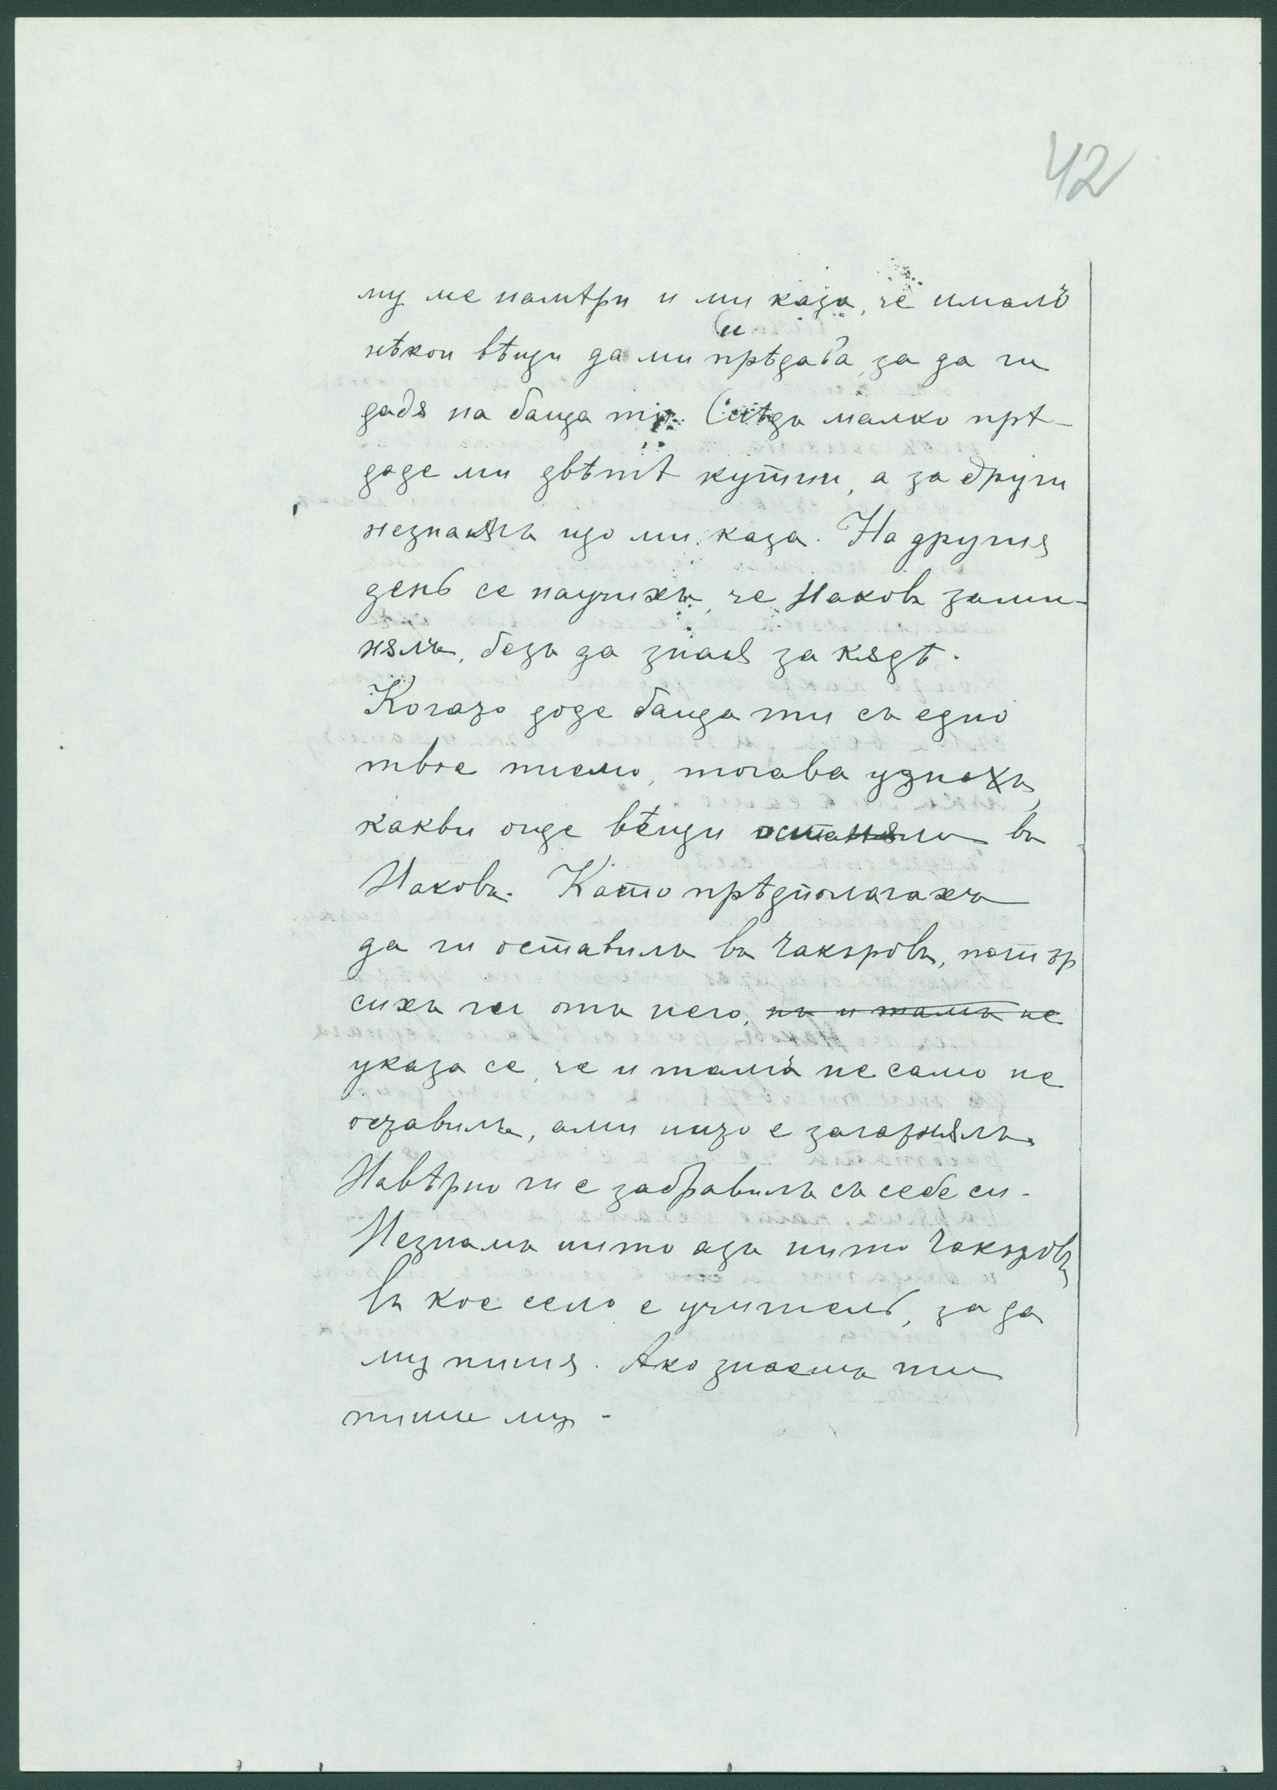 42
му ме намѣри и ми каза, че ималъ
и
нѣкои вѣщи да ми прѣдава за да ги
дадѫ на баща ти. Слѣдъ малко прѣ-
даде ми двѣтѣ кутии, а за други
незнаѭ що ми каза. На другия
день се научихъ, че Наковъ зами-
нѫлъ, безъ да знаѭ за кѫдѣ.
Когато доде баща ти съ едно
твое писмо, тогава узнахъ,
какви още вѣщи останѫли въ
Накова. Като прѣдполагахъ
да ги оставилъ въ Чакъровъ, потър
сихъ ги отъ него, нъ и тамъ не
указа се, че и тамъ не само не
оставилъ, ами нищо е загазнѫлъ.
Навѣрно ги е забравилъ съ себе си.
Незнамъ нито азъ нито Чакъровъ
въ кое село е учитель, за да
му пишѫ. Ако знаешъ ти
пиши му.